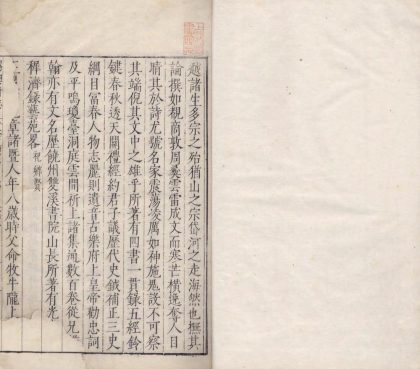 越諸生多宗之殆猶山之宗岱河之走海然也撫其
論撰如覩商敦周彞雲雷成文而寒芒橫逸奪人目
睛其於詩尤號名家震蕩凌厲如神施鬼設不可察
其端倪其文中之雄乎所著有四書一貫錄五經鈐
鍵春秋透天關禮經約君子議歷代史鉞補正三史
綱目富春人物志麗則遺音古樂府上皇帝勸忠詞
及平鳴瓊臺洞庭雲間祈上諸集通數百卷從兄
翰亦有文名歷饒州雙溪書院山長所著有光
稗濟錄藝苑畧 祀鄉賢
章諸暨人年八歲時父命牧牛隴上